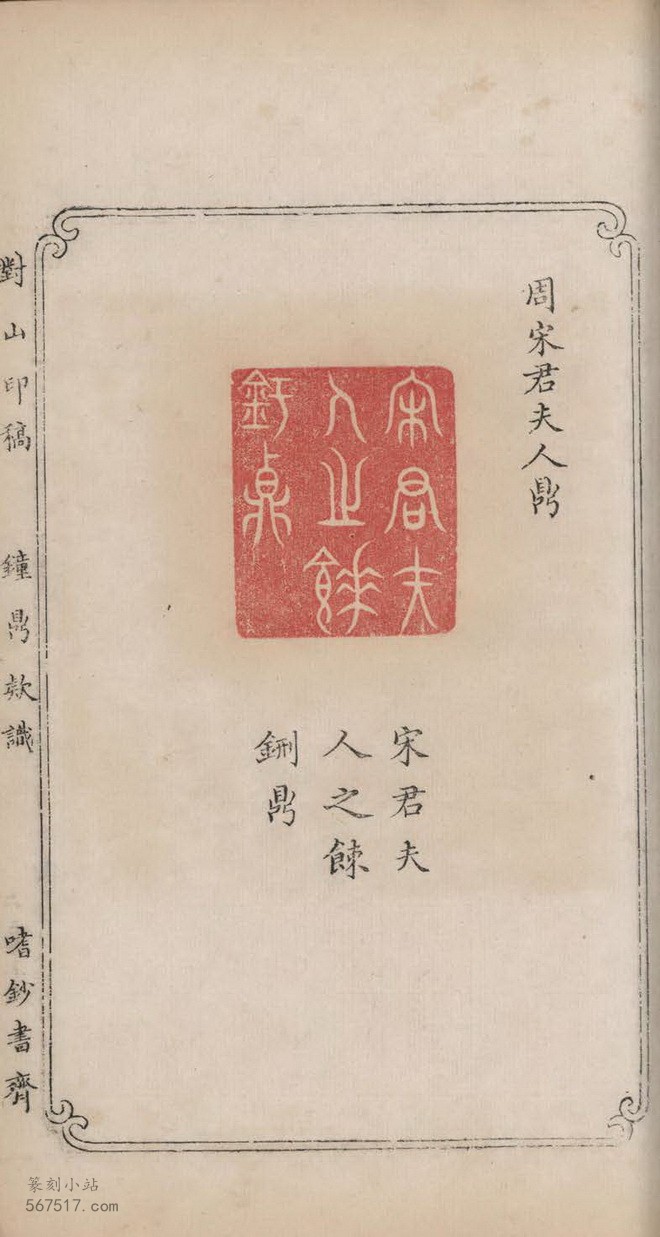 周宋君夫人鼎
宋君夫
人之餗
釪鼎
宋君夫
人之餗
鉶鼎
對山印稿 鐘鼎欵識 嗜鈔書齋
篆刻小站
567517.com